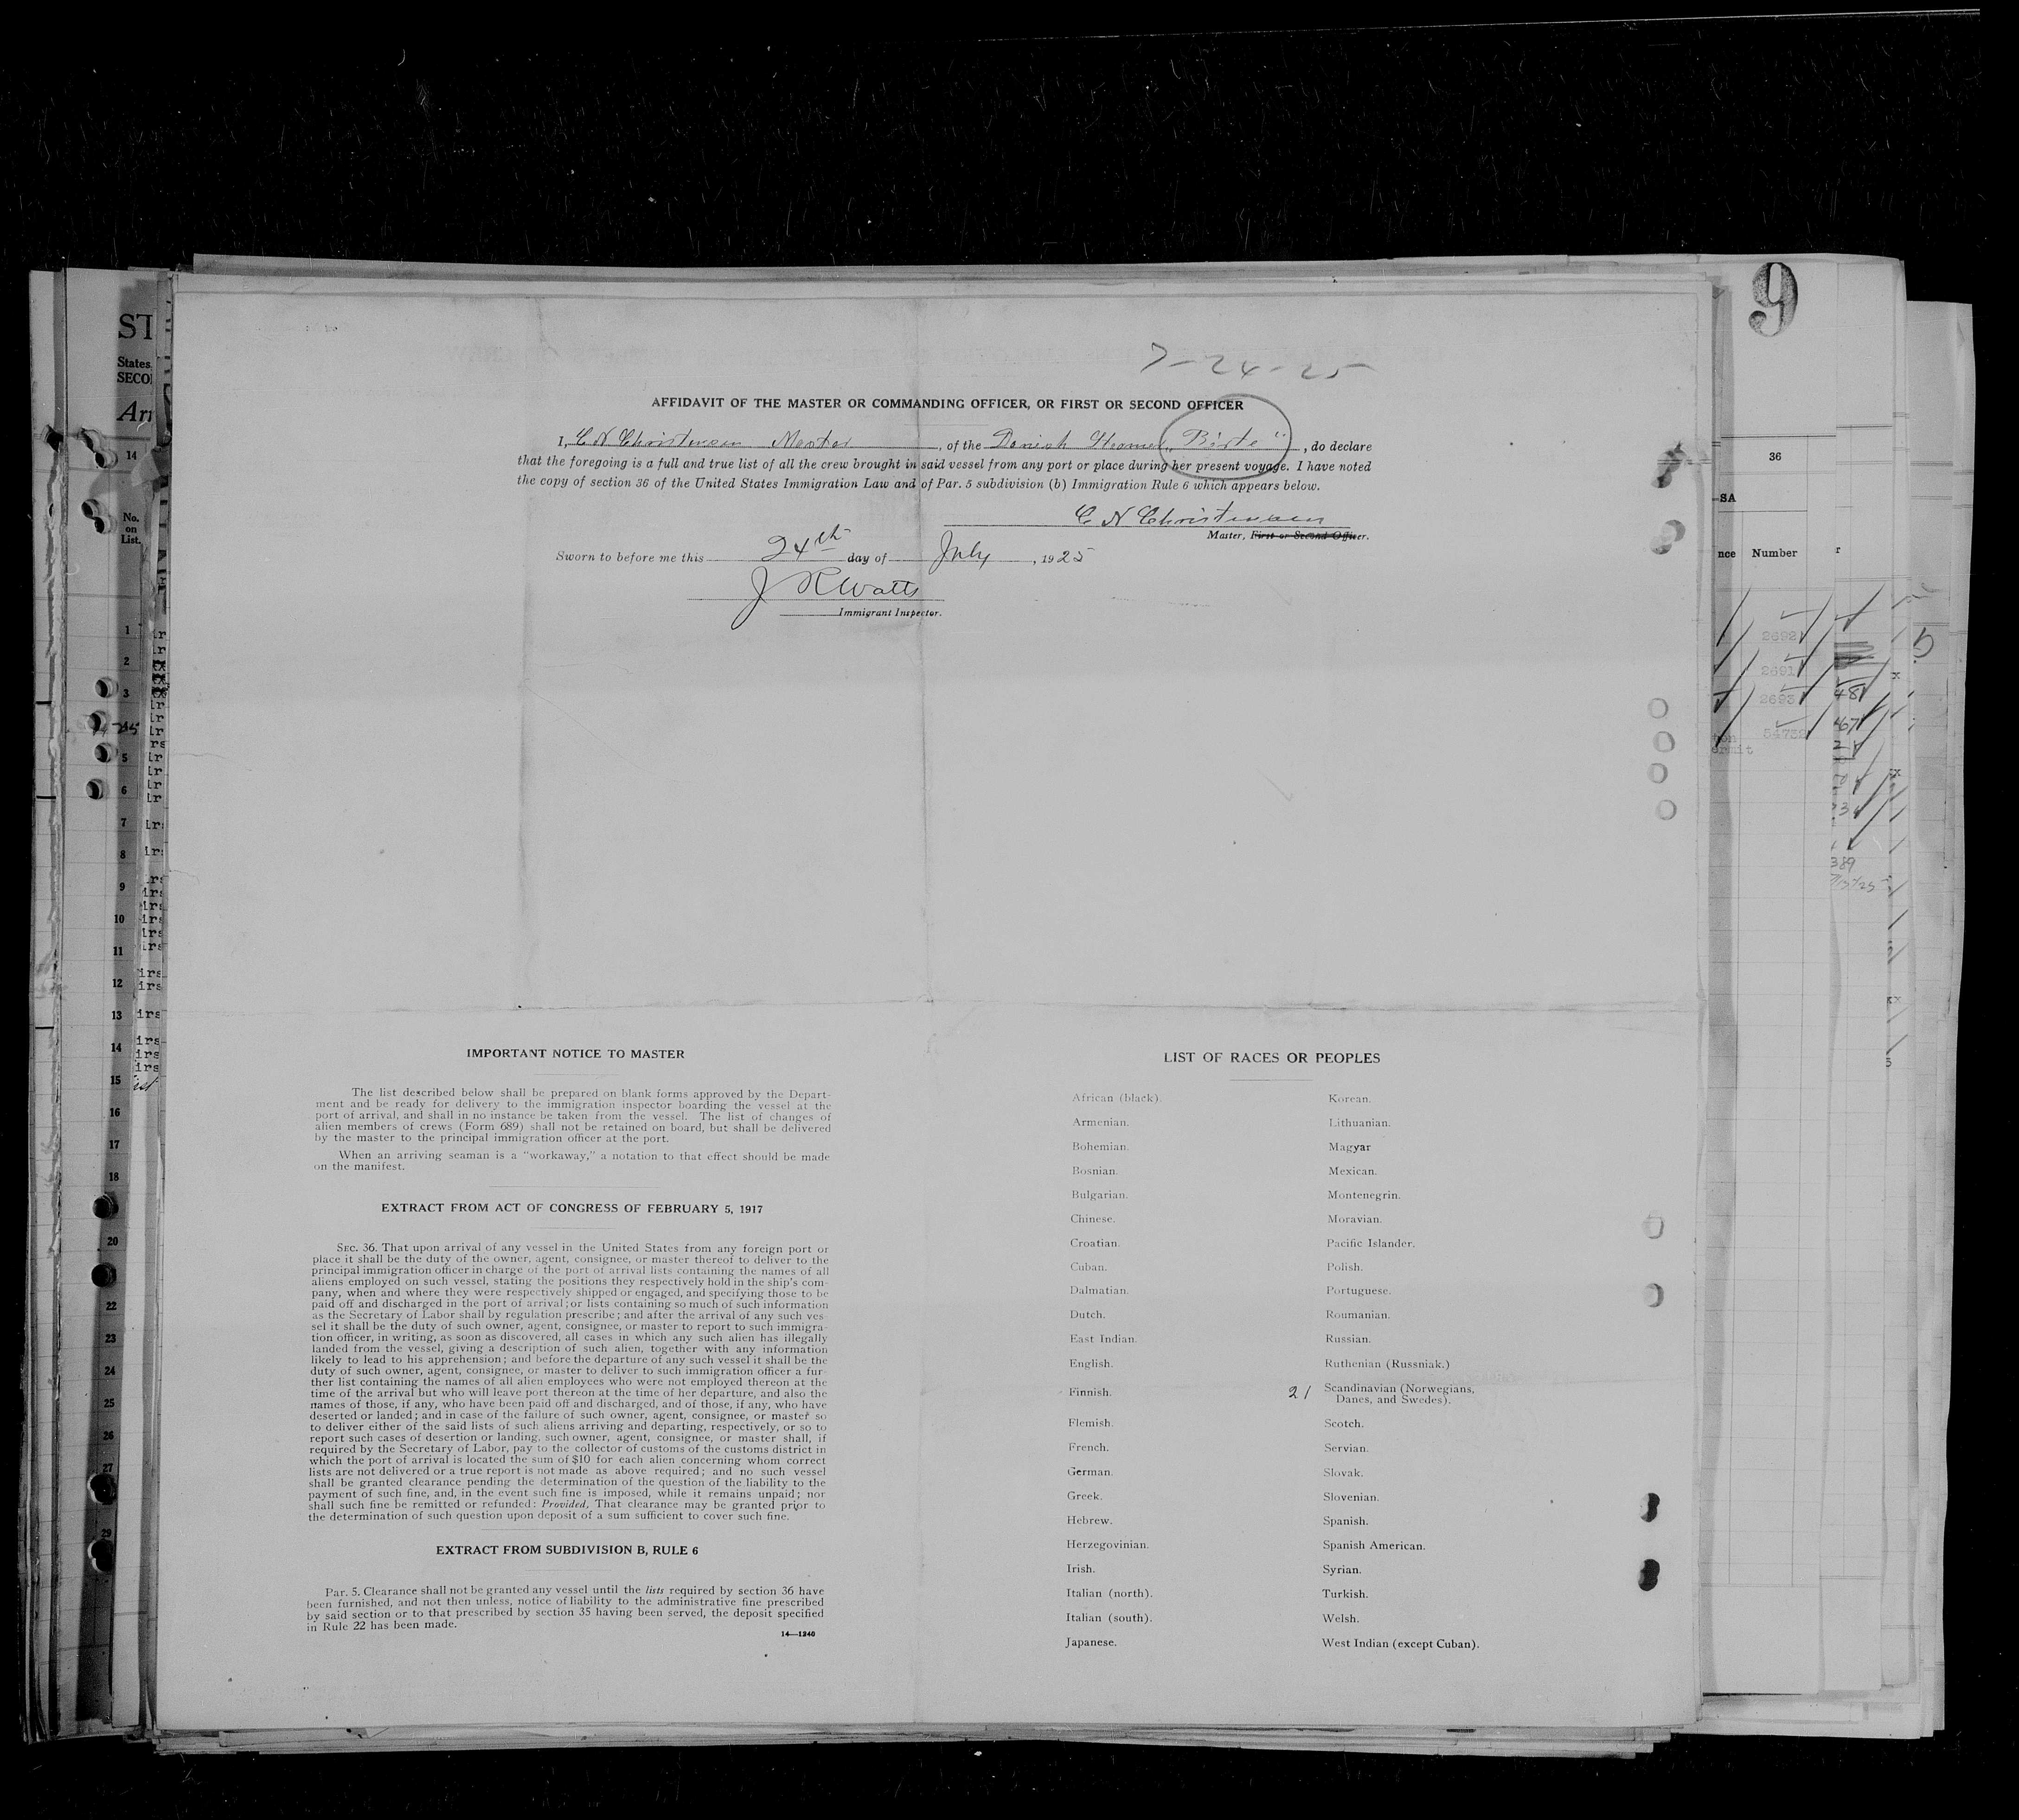 7-24-25
AFFIDAVIT OF THE MASTER OR COMMANDING OFFICER, OR FIRST OR SECOND OFFICER
I, C N Christensen Master, of the Danish Steamer „Birte", do declare
that the foregoing is a full and true list of all the crew brought in said vessel from any port or place during her present voyage. I have noted
the copy of section 36 of the United States Immigration Law and of Par. 5 subdivision (b) Immigration Rule 6 which appears below.
C N Christensen
Master, First or Second Officer.
Sworn to before me this 24th day of July, 1925
J R Watts
Immigrant Inspector.
IMPORTANT NOTICE TO MASTER
The list described below shall be prepared on blank forms approved by the Depart-
ment and be ready for delivery to the immigration inspector boarding the vessel at the
port of arrival, and shall in no instance be taken from the vessel. The list of changes of
alien members of crews (Form 689) shall not be retained on board, but shall be delivered
by the master to the principal immigration officer at the port.
When an arriving seaman is a "workaway," a notation to that effect should be made
on the manifest.
EXTRACT FROM ACT OF CONGRESS OF FEBRUARY 5, 1917
SEC. 36. That upon arrival of any vessel in the United States from any foreign port or
place it shall be the duty of the owner, agent, consignee, or master thereof to deliver to the
principal immigration officer in charge of the port of arrival lists containing the names of all
aliens employed on such vessel, stating the positions they respectively hold in the ship's com-
pany, when and where they were respectively shipped or engaged, and specifying those to be
paid off and discharged in the port of arrival; or lists containing so much of such information
as the Secretary of Labor shall by regulation prescribe; and after the arrival of any such ves-
sel it shall be the duty of such owner, agent, consignee, or master to report to such immigra-
tion officer, in writing, as soon as discovered, all cases in which any such alien has illegally
landed from the vessel, giving a description of such alien, together with any information
likely to lead to his apprehension; and before the departure of any such vessel it shall be the
duty of such owner, agent, consignee, or master to deliver to such immigration officer a fur-
ther list containing the names of all alien employees who were not employed thereon at the
time of the arrival but who will leave port thereon at the time of her departure, and also the
names of those, if any, who have been paid off and discharged, and of those, if any, who have
deserted or landed; and in case of the failure of such owner, agent, consignee, or master so
to deliver either of the said lists of such aliens arriving and departing, respectively, or so to
report such cases of desertion or landing, such owner, agent, consignee, or master shall, if
required by the Secretary of Labor, pay to the collector of customs of the customs district in
which the port of arrival is located the sum of $10 for each alien concerning whom correct
lists are not delivered or a true report is not made as above required; and no such vessel
shall be granted clearance pending the determination of the question of the liability to the
payment of such fine, and, in the event such fine is imposed, while it remains unpaid; nor
shall such fine be remitted or refunded: Provided, That clearance may be granted prior to
the determination of such question upon deposit of a sum sufficient to cover such fine.
EXTRACT FROM SUBDIVISION B, RULE 6
Par. 5. Clearance shall not be granted any vessel until the lists required by section 36 have
been furnished, and not then unless, notice of liability to the administrative fine prescribed
by said section or to that prescribed by section 35 having been served, the deposit specified
in Rule 22 has been made.
14—1240
LIST OF RACES OR PEOPLES
African (black).
Armenian.
Bohemian.
Bosnian.
Bulgarian.
Chinese.
Croatian.
Cuban.
Dalmatian.
Dutch.
East Indian.
English.
Finnish.
Flemish.
French.
German.
Greek.
Hebrew.
Herzegovinian.
Irish.
Italian (north).
Italian (south).
Japanese.
Korean.
Lithuanian.
Magyar
Mexican.
Montenegrin.
Moravian.
Pacific Islander.
Polish.
Portuguese.
Roumanian.
Russian.
Ruthenian (Russniak.)
21 Scandinavian (Norwegians,
Danes, and Swedes).
Scotch.
Servian.
Slovak.
Slovenian.
Spanish.
Spanish American.
Syrian.
Turkish.
Welsh.
West Indian (except Cuban).
9
36
Number
2692
2691
2693
54732
ST
States
SECO
Arr
14
No.
on
List.
1
2
3
5
6
7
8
9
10
11
12
13
14
15
16
17
18
20
22
23
24
25
26
27
29